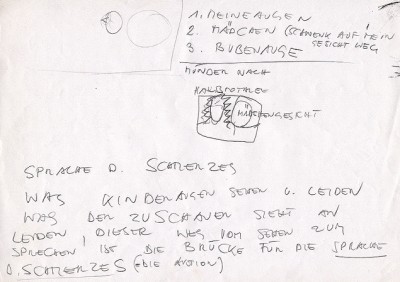 1. MEINE AUGEN
2. MÄDCHEN (SCHWENK AUF MEIN
GESICHT WEG
3. BUBENAUGE
MÜNDER NACH
MÄDCHENGESICHT
SPRACHE D. SCHMERZES
WAS KINDERAUGEN SEHEN U. LEIDEN
WAS DER ZUSCHAUER SIEHT AN
LEIDEN, DIESER WEG VOM SEHEN ZUM
SPRECHEN IST DIE BRÜCKE FÜR DIE SPRACHE
D. SCHMERZES (= DIE AKTION)